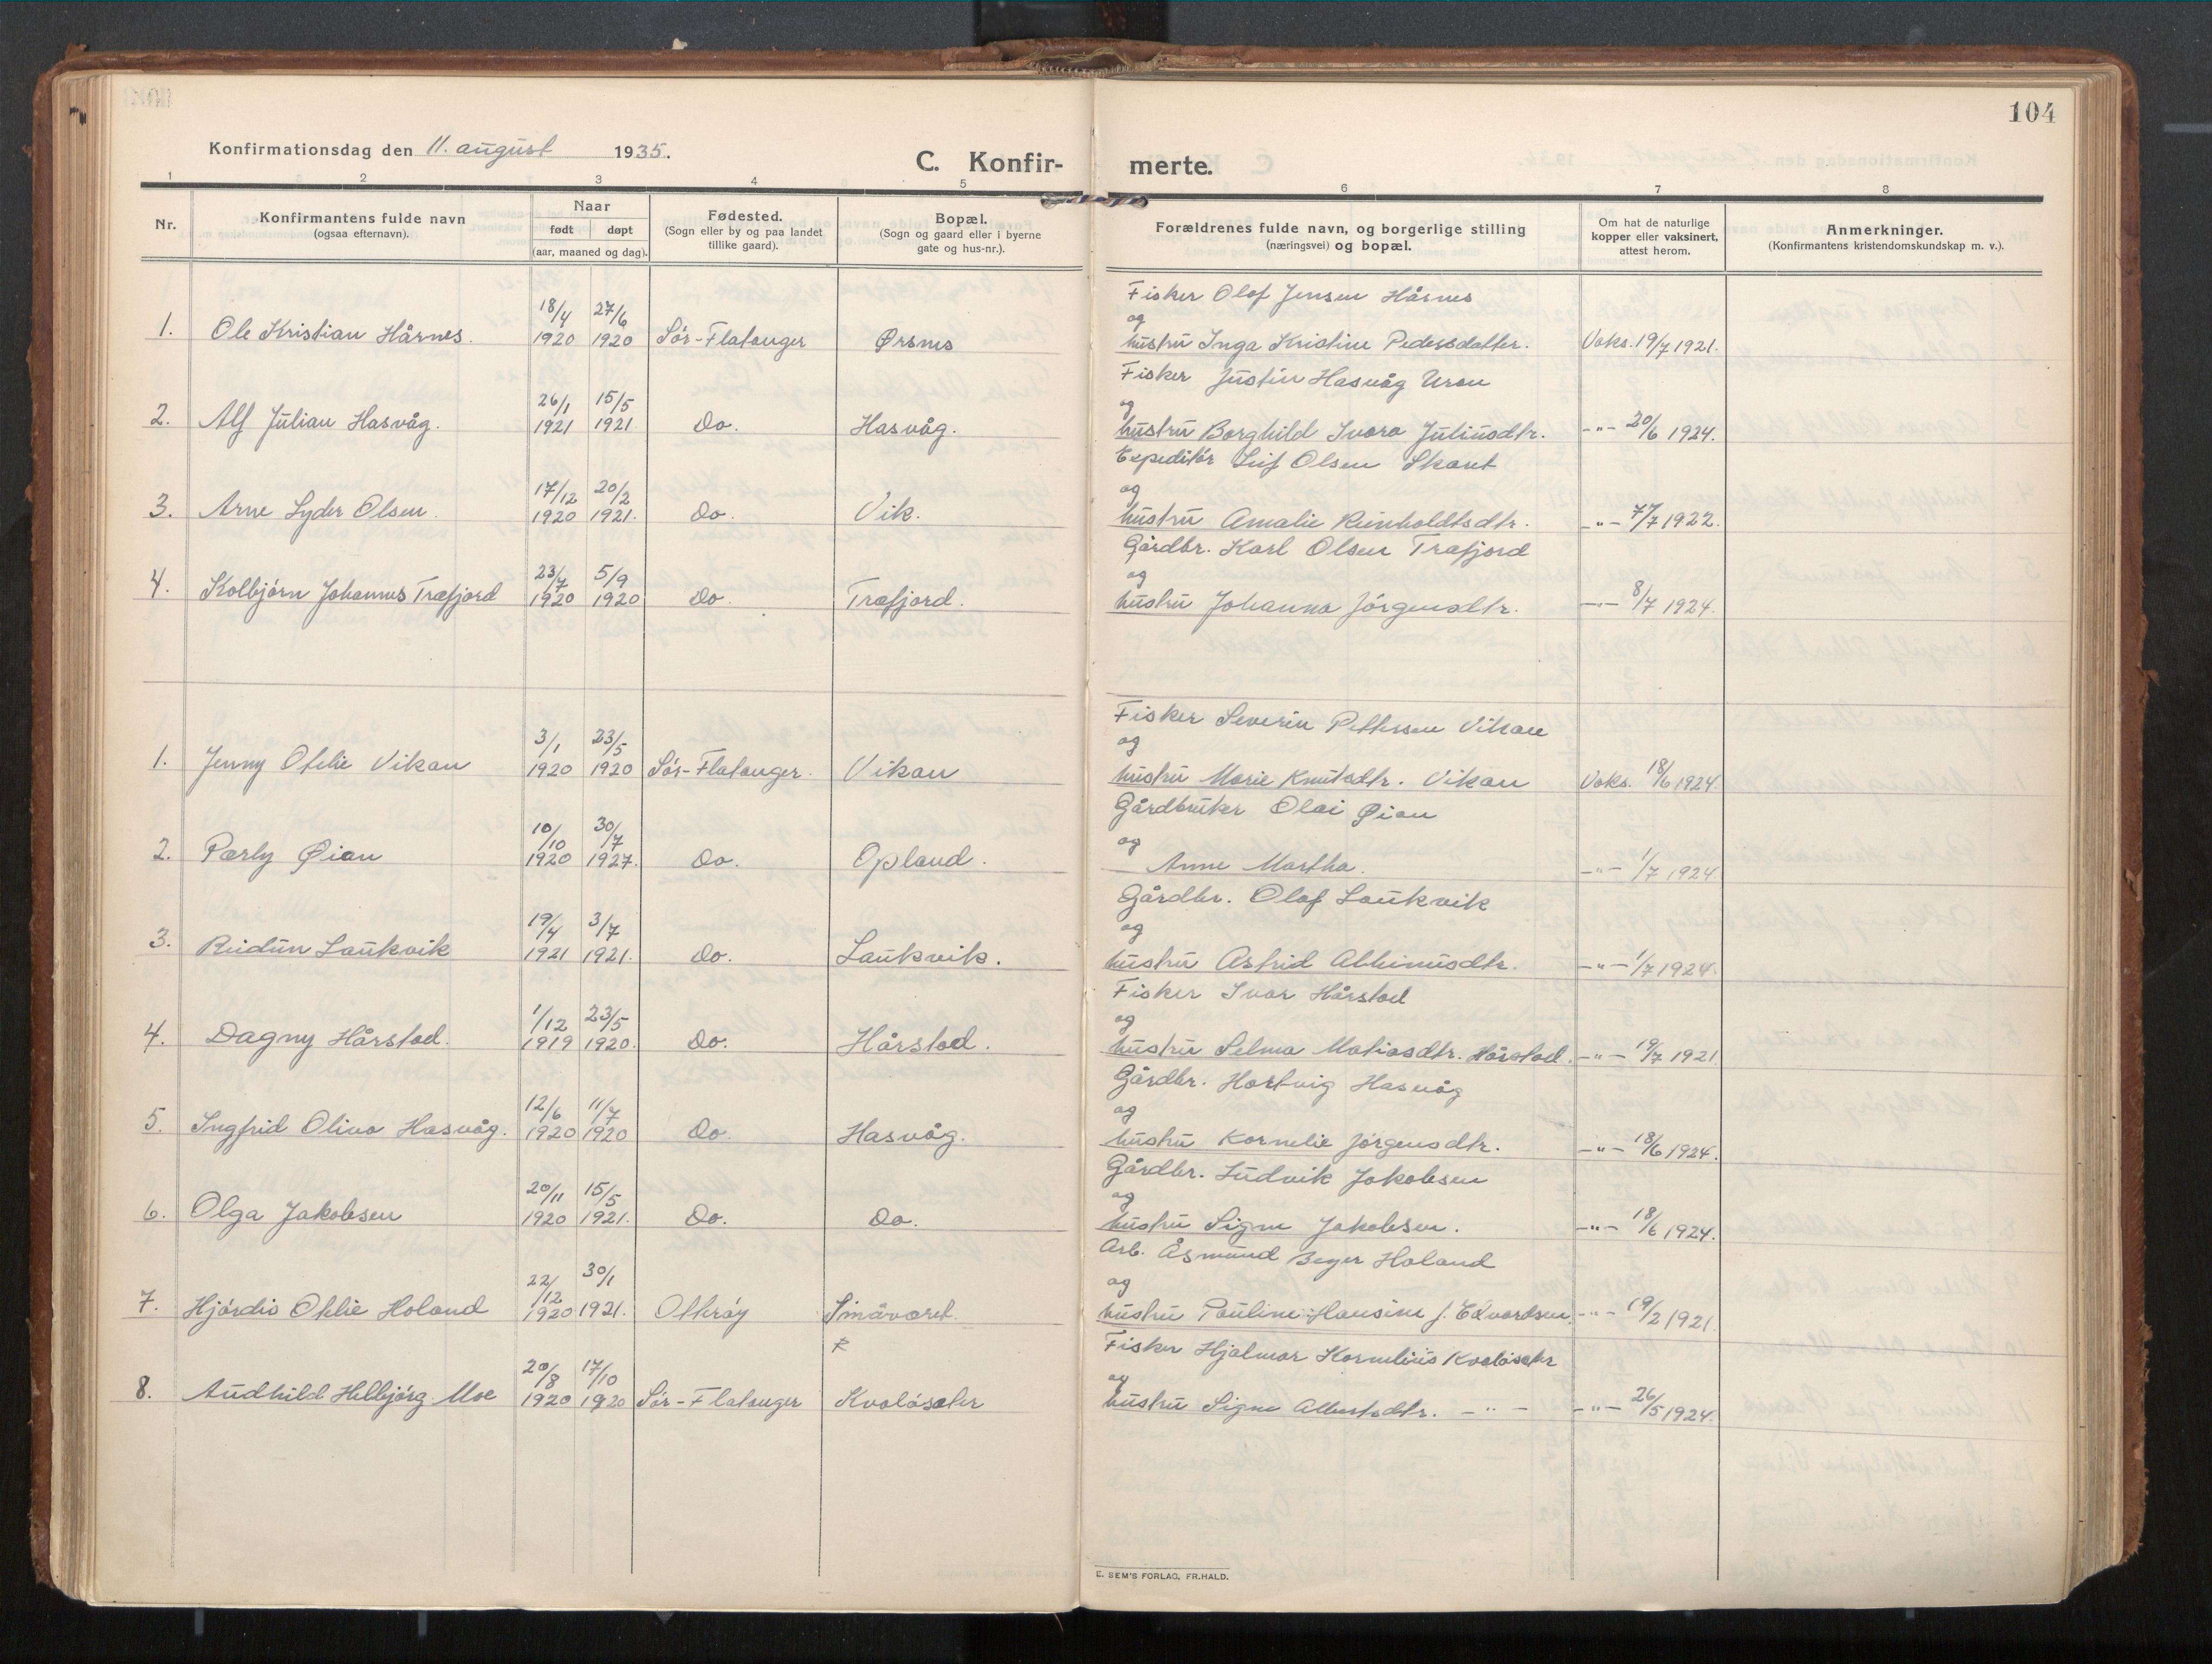 104
Konfirmationsdag den 11. august 1935.
C. Konfir- merte.
1 2 3 4 5 6 7 8
Nr.
Konfirmantens fulde navn
(ogsaa efternavn).
Naar
født døpt
(aar, maaned og dag).
Fødested.
(Sogn eller by og paa landet
tillike gaard).
Bopæl.
(Sogn og gaard eller i byerne
gate og hus-nr.).
Forældrenes fulde navn, og borgerlige stilling
(næringsvei) og bopæl.
Om hat de naturlige
kopper eller vaksinert,
attest herom.
Anmerkninger.
(Konfirmantens kristendomskundskap m. v.).
Fisker Olof Jensen Hårnes
18/4 27/6 og
1. Ole Kristian Hårnes. 1920 1920 Sør-Flatanger Ørsnes hustru Inga Kristine Pedersdatter. Vaks. 19/7 1921.
Fisker Justin Hasvåg Uran
26/1 15/5 og
2. Alf Julian Hasvåg. 1921 1921 Do. Hasvåg. hustru Borghild Ivara Juliusdtr. -"- 20/6 1924.
Expeditør Leif Olsen
17/12 20/2 og
3. Arne Lyder Olsen. 1920 1921. Do. Vik. hustru Amalie Reinholdtsdtr. -"- 7/7 1922.
Gårdbr. Karl Olsen Træfjord
23/7 5/9 og
4. Kolbjørn Johannes Træfjord 1920 1920 Do. Træfjord. hustru Johanna Jørgensdtr. -"- 8/7 1924.
Fisker Severin Pettersen Vikan
3/1 23/5 og
1. Jenny Otelie Vikan 1920 1920 Sør-Flatanger. Vikan hustru Marie Knutsdtr. Vikan Vaks. 18/6 1924.
Gårdbruker Olai Øian
10/10 30/7 og
2. Pærly Øian 1920 1927. Do. Opland. Anne Martha. -"- 1/7 1924.
Gårdbr. Olaf Laukvik
19/4 3/7 og
3. Reidun Laukvik 1921 1921. Do. Laukvik. hustru Astrid Albinusdtr. -"- 1/7 1924.
Fisker Ivar Hårstad
1/12 23/5 og
4. Dagny Hårstad. 1919 1920. Do. Hårstad. hustru Selma Matiasdtr. Hårstad. -"- 19/7 1921
Gårdbr. Hartvig Hasvåg
12/6 11/7 og
5. Ingfrid Oliva Hasvåg. 1920 1920 Do. Hasvåg. hustru Kornelie Jørgensdtr. -"- 18/6 1924.
Gårdbr. Ludvik Jakobsen
20/11 15/5 og
6. Olga Jakobsen 1920 1921. Do. Do. hustru Signe Jakobsen. -"- 18/6 1924.
Arb. Åsmund Beyer Holand
22/12 30/1 og
7. Hjørdis Otelie Holand 1920 1921. Otterøy Småværet. hustru Pauline Hansine f. Edvardsen. -"- 19/2 1921.
Fisker Hjalmar Kornelius Kvaløseter
20/8 17/10 og
8. Audhild Helbjørg Moe 1920 1920 Sør-Flatanger Kvaløseter hustru Signe Albertsdtr. -"- -"- 26/5 1924.
E. SEM'S FORLAG, FR.HALD.